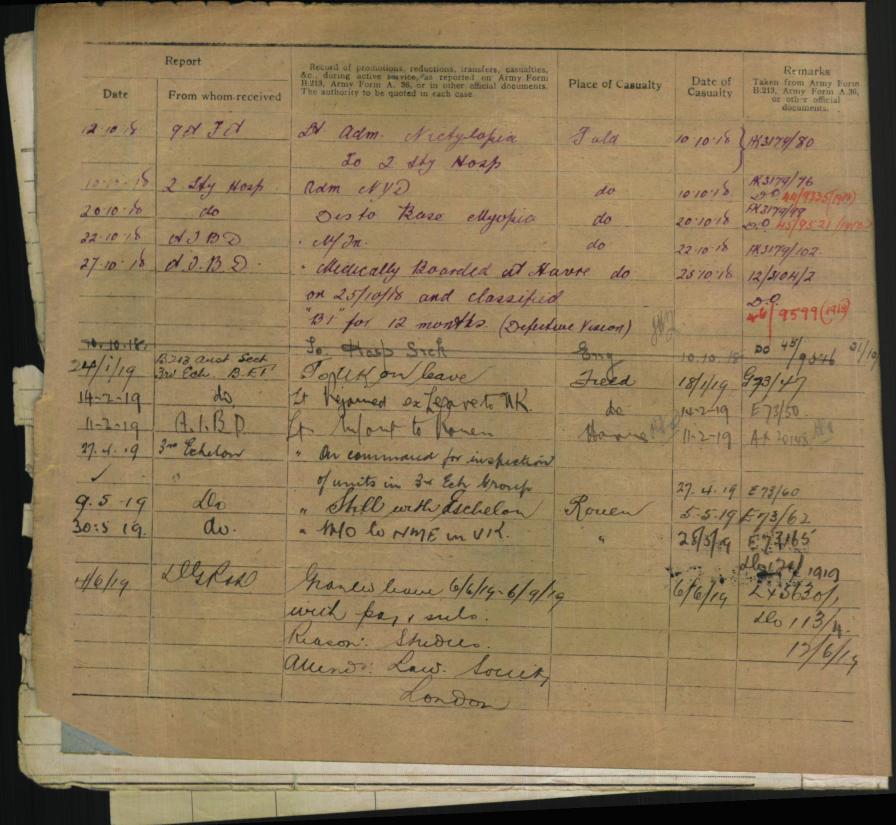 Report
Date
From whom received
Record of promotions, reductions, transfers, casualties, &c., during active service, as reported on Army Form B.213, Army Form A. 36, or in other official documents. The authority to be quoted in each case.
Place of Casualty
Date of Casualty
Remarks
Taken from Army Form B.213, Army Form A.36, or other official documents.
12.10.18 Lt Adm. Nictylopia Field 10.10.18 3179/80
To 2 Sty Hosp
2 Sty Hosp Adm NYD do 10.10.18 3179/76
D.O
20.10.18 do Dis to Base Myopia do 20.10.18 3179/99
D.O
22.10.18 A.I.B.D " M/In. do 22.10.18 3179/102
27.10.18 A.I.B.D. " Medically Boarded at Havre do 25.10.18
on 25/10/18 and classified D.O.
"B1" for 12 months. (Defective Vision) 46/9599 (1918)
10.10.18. To Hosp Sick Eng 10.10.18 DO 45/9546
24/1/19 B213 Aust Sect 3rd Ech. B.E.F To UK on leave Field 18/1/19 G73/47
14-2-19 do Lt Rejoined ex Leave to UK. do 14-2-19 E73/50
11-2-19 A.I.B.D. Lt M/out to Rouen Havre 11-2-19
27.4.19 3rd Echelon " On command for inspection
of units in 3rd Ech Group 27.4.19 E73/60
9.5.19 Do " Still with Eschelon Rouen 5.5.19 E73/62
30.5.19. do. " M/O to NME in UK. " 25/5/19 E73/65
1919
Granted leave 6/6/19-6/9/19 6/6/19
with pay &amp; subs. Do 113/
Reason: Studies. 12/6/19
Attends: Law Society
London